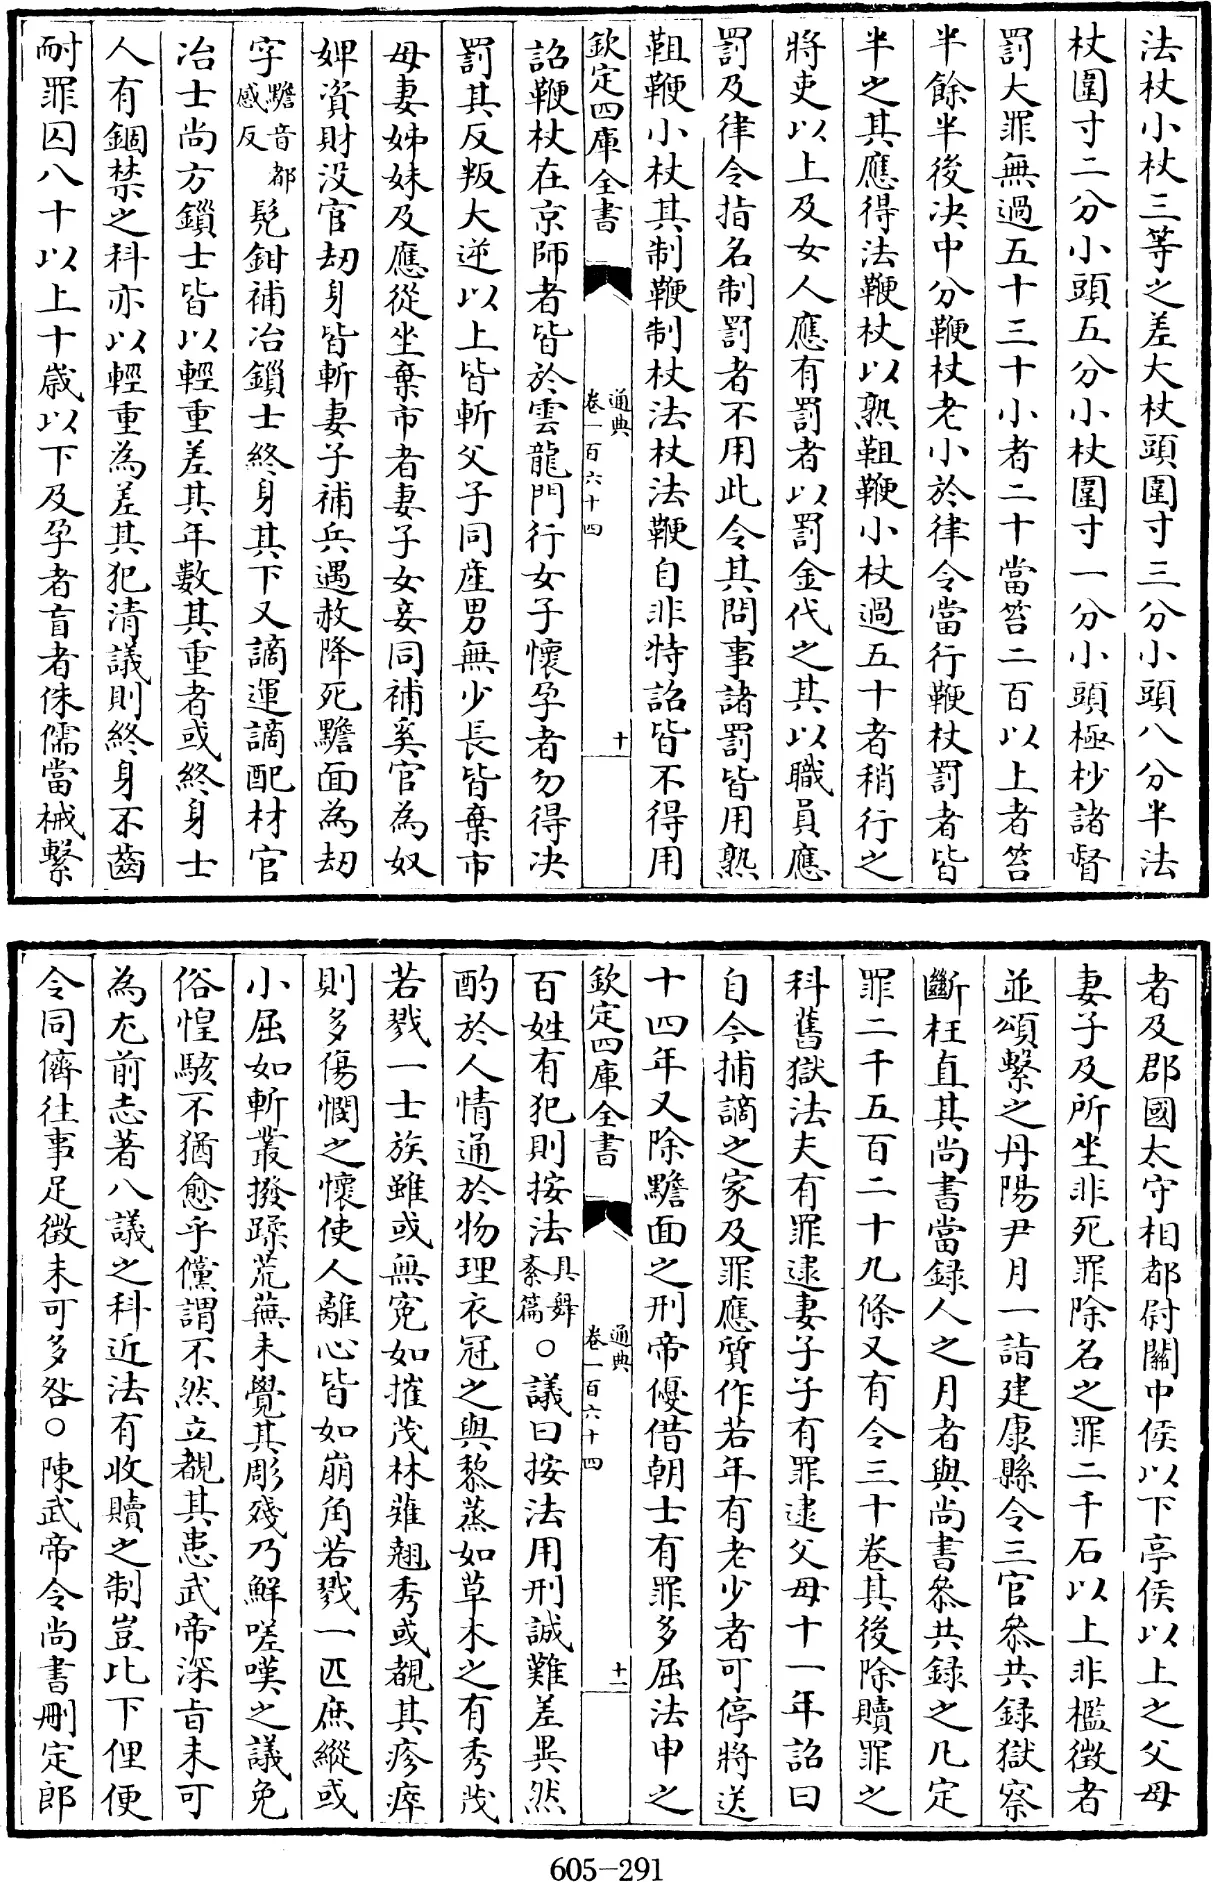 法杖小杖三等之差大杖頭圍寸三分小頭八分半法
杖圍寸二分小頭五分小杖圍寸一分小頭極杪諸督
罰大罪無過五十三十小者二十當笞二百以上者笞
半餘半後决中分鞭杖老小於律令當行鞭杖罰者皆
半之其應得法鞭杖以熟靼鞭小杖過五十者稍行之
將吏以上及女人應有罰者以罰金代之其以職員應
罰及律令指名制罰者不用此令其問事諸罰皆用熟
靼鞭小杖其制鞭制杖法杖法鞭自非特詔皆不得用
欽定四庫全書
通典
卷一百六十四
十
詔鞭杖在京師者皆於雲龍門行女子懷孕者勿得决
罰其反叛大逆以上皆斬父子同産男無少長皆棄市
母妻姊妹及應從坐棄市者妻子女妾同補奚官為奴
婢資財没官劫身皆斬妻子補兵遇赦降死黵面為劫
字黵音都感反髡鉗補冶鎖士終身其下又謫運謫配材官
冶士尚方鎖士皆以輕重差其年數其重者或終身士
人有錮禁之科亦以輕重為差其犯清議則終身不齒
耐罪囚八十以上十歳以下及孕者盲者侏儒當械繫
者及郡國太守相都尉關中侯以下亭侯以上之父母
妻子及所坐非死罪除名之罪二千石以上非檻徵者
並頌繫之丹陽尹月一詣建康縣令三官叅共録獄察
斷枉直其尚書當録人之月者與尚書叅共録之凡定
罪二千五百二十九條又有令三十卷其後除贖罪之
科舊獄法夫有罪逮妻子子有罪逮父母十一年詔曰
自今捕謫之家及罪應質作若年有老少者可停將送
十四年又除黵面之刑帝優借朝士有罪多屈法申之
欽定四庫全書
通典
卷一百六十四
十一
百姓有犯則按法具舞紊篇○議曰按法用刑誠難差異然
酌於人情通於物理衣冠之與黎蒸如草木之有秀茂
若戮一士族雖或無寃如摧茂林薙翹秀或覩其疹瘁
則多傷憫之懷使人離心皆如崩角若戮一匹庶縱或
小屈如斬叢撥蹂荒蕪未覺其彫殘乃鮮嗟嘆之議免
俗惶駭不猶愈乎儻謂不然立覩其患武帝深旨未可
為尤前志著八議之科近法有收贖之制豈比下俚便
令同儕往事足徴未可多咎○陳武帝令尚書刪定郎
605-291